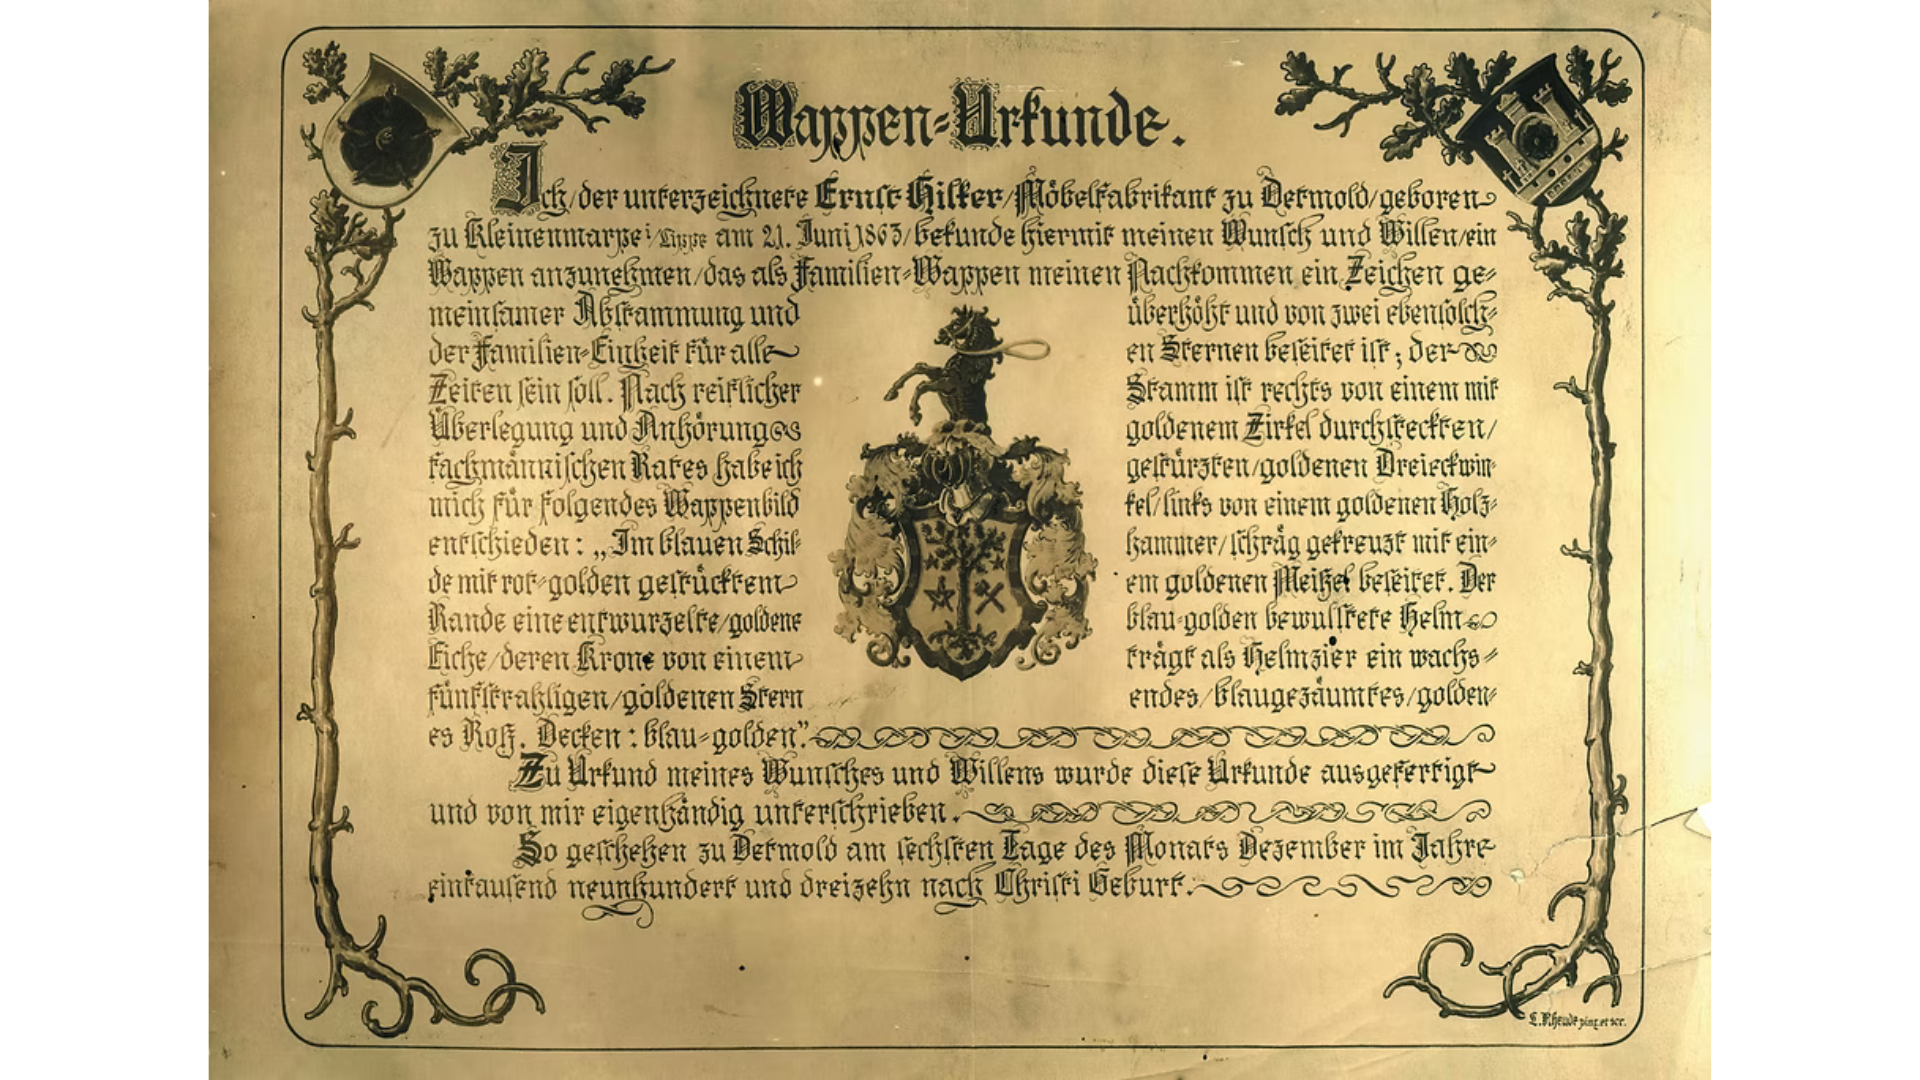 Wappen-Urkunde.
Ich/der unterzeichnete Ernst Hilker/Möbelfabrikant zu Detmold/geboren
zu Kleinenmarpe i/Lippe am 21. Juni 1863/bekunde hiermit meinen Wunsch und Willen/ein
Wappen anzunehmen/das als Familien-Wappen meinen Nachkommen ein Zeichen ge-
meinsamer Abstammung und
der Familien-Einheit für alle
Zeiten sein soll. Nach reiflicher
Überlegung und Anhörung
fachmännischen Rates habe ich
mich für folgendes Wappenbild
entschieden: „Im blauen Schil-
de mit rot-golden gestücktem
Rande eine entwurzelte/goldene
Eiche/deren Krone von einem
fünfstrahligen/goldenen Stern
überhöht und von zwei ebensolch-
en Sternen beseitet ist; der
Stamm ist rechts von einem mit
goldenem Zirkel durchsteckten/
gestürzten/goldenen Dreieckwin-
kel/links von einem goldenen Holz-
hammer/schräg gekreuzt mit ein-
em goldenen Meißel beseitet. Der
blau-golden bewulstete Helm
trägt als Helmzier ein wachs-
endes/blaugezäumtes/golden-
es Roß. Decken: blau-golden."
Zu Urkund meines Wunsches und Willens wurde diese Urkunde ausgefertigt
und von mir eigenhändig unterschrieben.
So geschehen zu Detmold am sechsten Tage des Monats Dezember im Jahre
eintausend neunhundert und dreizehn nach Christi Geburt.
L. Rheude pinx. et scr.